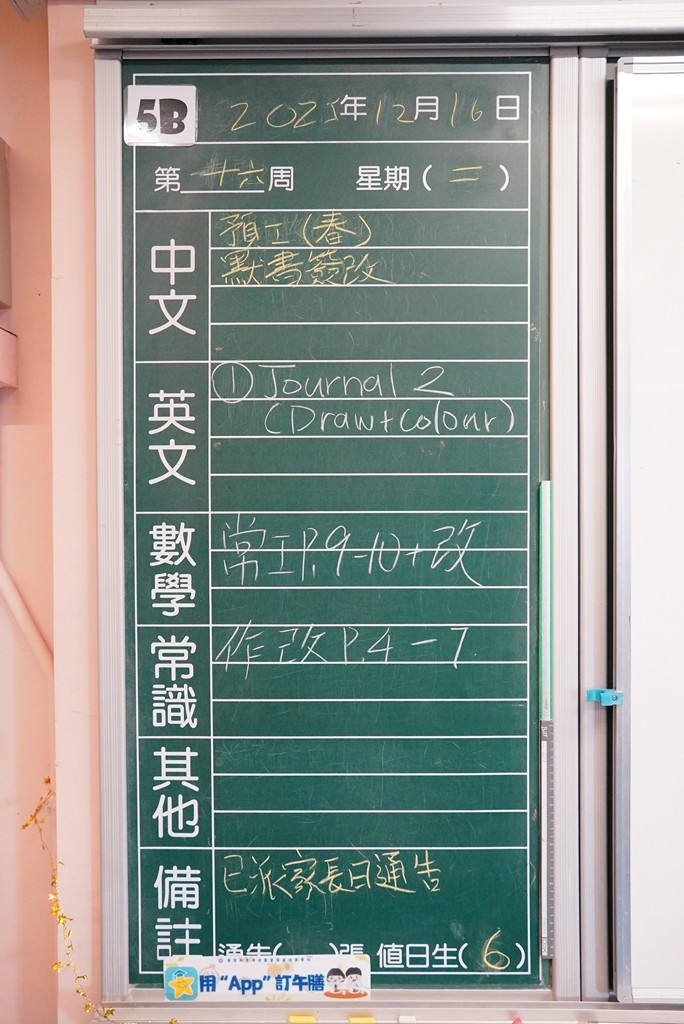 5B 2025年12月16日
第十六周 星期(二)
中文
預工(春)
默書簽改
英文
① Journal 2
(Draw+colour)
數學
常工P.9-10+改
常識
作改P.4-7
其他
備註
已派家長日通告
通告( )張 值日生(6)
用“App”訂午膳